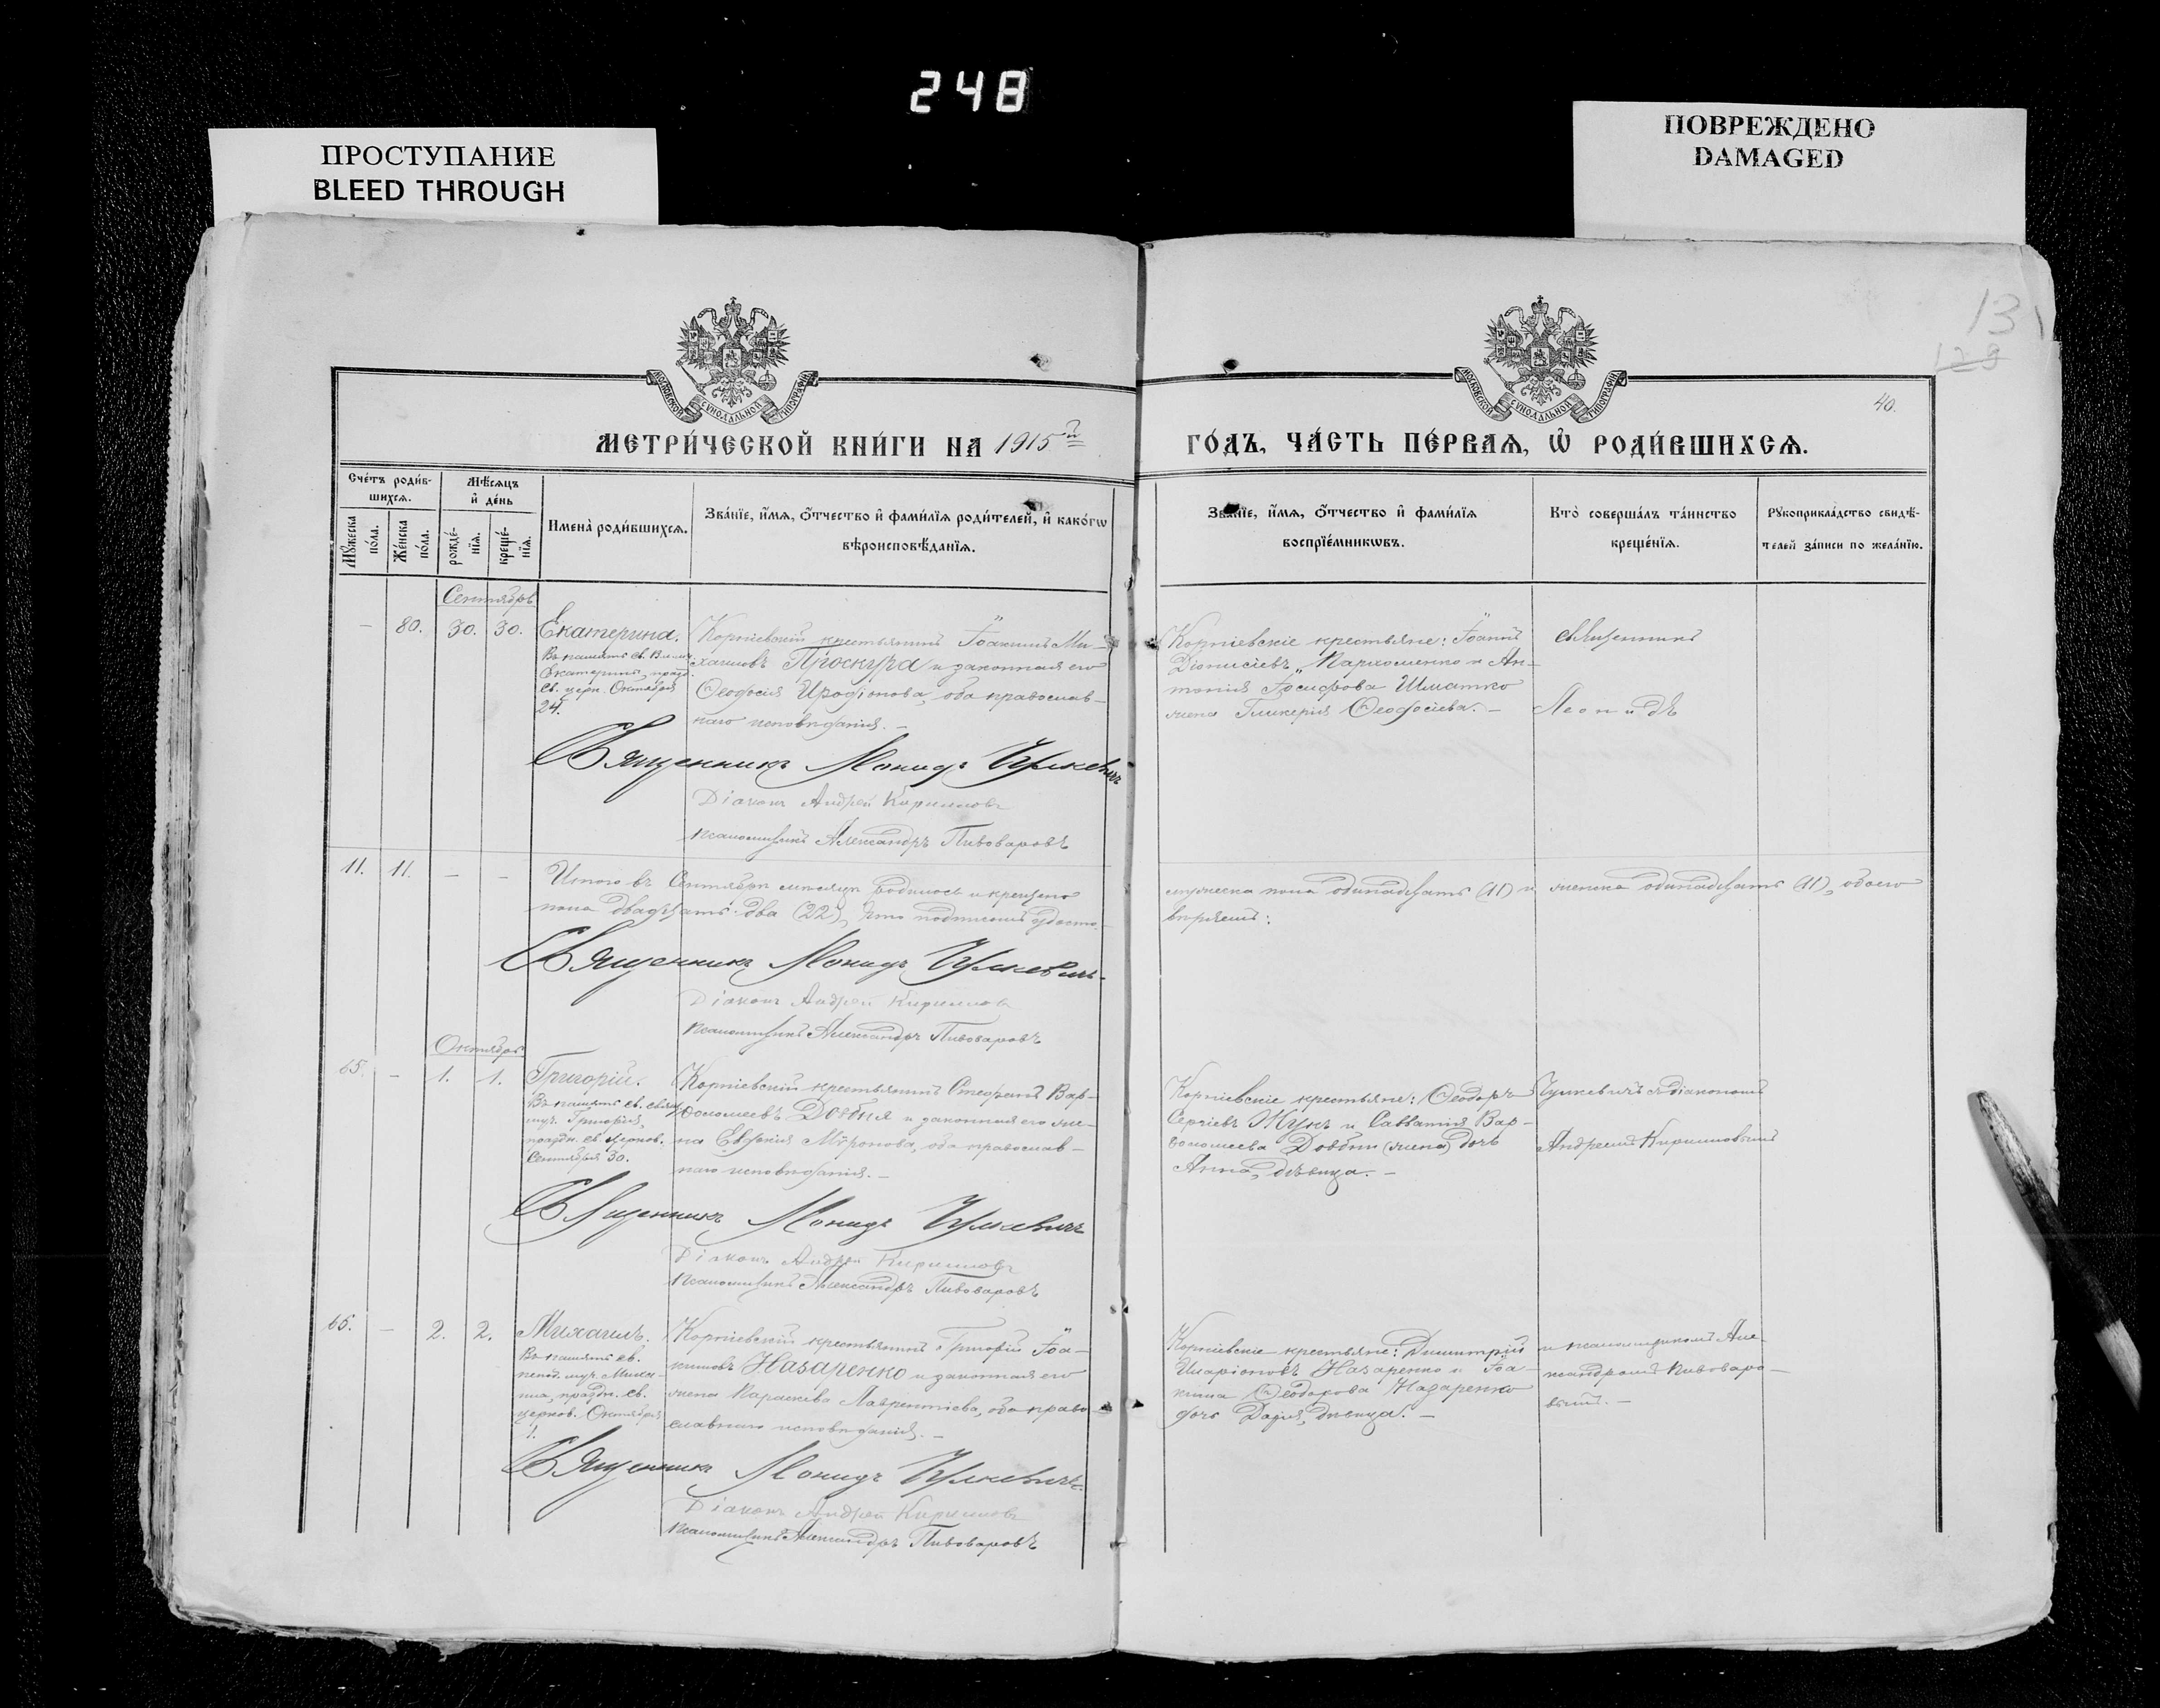 248
ПРОСТУПАНИЕ
BLEED THROUGH
ПОВРЕЖДЕНО
DAMAGED
13
129
40.
МОСКОВСКОЙ СѴНОДАЛЬНОЙ ТИПОГРАФІИ
МОСКОВСКОЙ СѴНОДАЛЬНОЙ ТИПОГРАФІИ
МЕТРИ́ЧЕСКОЙ КНИ́ГИ НА 1915й
ГО́ДЪ, ЧА́СТЬ ПЕ́РВАѦ, Ѽ РОДИ́ВШИХСѦ.
Сче́тъ роди́в-
шихсѧ.
Мѣ́сѧцъ
и҆ де́нь
Мꙋ́жеска
по́ла.
Же́нска
по́ла.
рожде́-
нїѧ.
креще́-
нїѧ.
Имена̀ роди́вшихсѧ.
Зва́нїе, и҆́мѧ, ѻ҆́тчество и҆ фами́лїѧ роди́телей, и҆ како́гѡ
вѣроисповѣ́данїѧ.
Зва́нїе, и҆́мѧ, ѻ҆́тчество и҆ фами́лїѧ
воспрїе́мникѡвъ.
Кто̀ соверша́лъ та́инство
креще́нїѧ.
Рꙋкоприкла́дство свидѣ́-
телей за́писи по жела́нїю.
Сентябрь
— 80. 30. 30. Екатерина.
Въ память св. Велик.
Екатерины, празд.
св. церк. Октября
24.
Корніевскій крестьянинъ Іоакимъ Ми-
хаиловъ Проскура и законная его
Ѳеодосія Иродіонова, оба православ-
наго исповѣданія. —
Корніевскіе крестьяне: Іоаннъ
Діонисіевъ Пархоменко и Ан-
тонія Іосифова Шматко
жена Гликерія Ѳеодосіева. —
Священникъ
Леонидъ
Священникъ Леонидъ Пушкевичъ
Діаконъ Андрей Кирилловъ
Псаломщикъ Александръ Пивоваровъ
11. 11. — — Итого въ Сентябрѣ мѣсяцѣ родилось и крещено
мужеска пола одинадцать (11) и женска одинадцать (11), обоего
пола двадцать два (22), что подписомъ удосто-
вѣряемъ:
Священникъ Леонидъ Пушкевичъ
Діаконъ Андрей Кирилловъ
Псаломщикъ Александръ Пивоваровъ
Октябрь
65. — 1. 1. Григорій.
Въ память св. свящ.
муч. Григорія,
праздн. св. Церков.
Сентября 30.
Корніевскій крестьянинъ Стефанъ Вар-
ѳоломеевъ Довбня и законная его же-
на Евфимія Мѵронова, оба православ-
наго исповѣданія. —
Корніевскіе крестьяне: Ѳеодоръ
Сергіевъ Жукъ и Савватія Вар-
ѳоломеева Довбни (жена) дочь
Анна, дѣвица. —
Пушкевичъ съ діакономъ
Андреемъ Кирилловымъ
Священникъ Леонидъ Пушкевичъ
Діаконъ Андрей Кирилловъ
Псаломщикъ Александръ Пивоваровъ
66. — 2. 2. Михаилъ.
Въ память св.
препод. муч. Михаи-
ла, праздн. св.
церков. Октября
1.
Корніевскій крестьянинъ Григорій Іоа-
кимовъ Назаренко и законная его
жена Параскева Лаврентіева, оба право-
славнаго исповѣданія. —
Корніевскіе крестьяне: Димитрій
Иларіоновъ Назаренко и Іоа-
кима Ѳеодорова Назаренко
дочь Дарія, дѣвица. —
и псаломщикомъ Але-
ксандромъ Пивоваро-
вымъ. —
Священникъ Леонидъ Пушкевичъ
Діаконъ Андрей Кирилловъ
Псаломщикъ Александръ Пивоваровъ